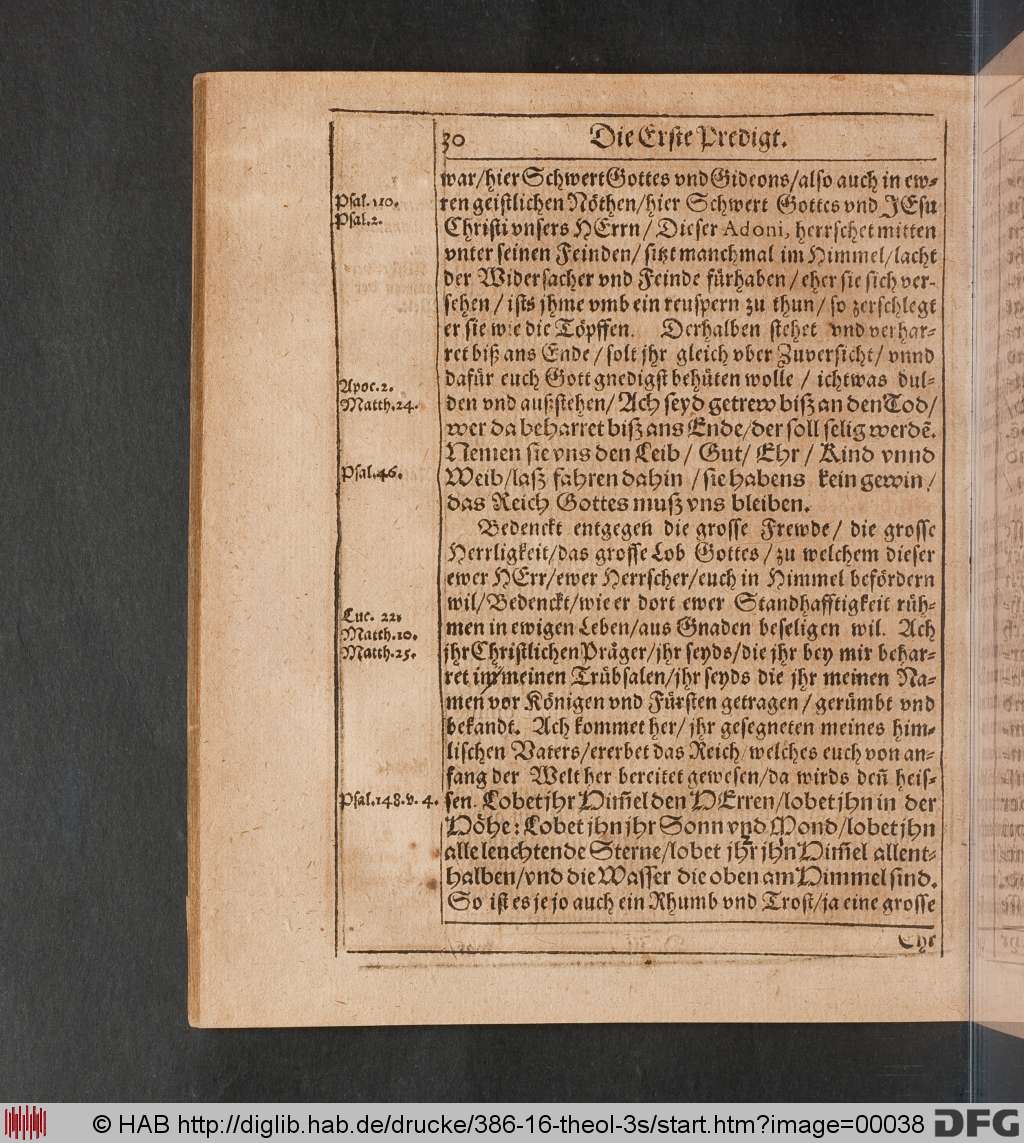 30 Die Erste Predigt.
war/hier Schwert Gottes vnd Gideons/also auch in ew-
Psal.110.
ren geistlichen Nöthen/hier Schwert Gottes vnd JEsu
Psal.2.
Christi vnsers HErrn/ Dieser Adoni, herrschet mitten
vnter seinen Feinden/ sitzt manchmal im Himmel/lacht
der Widersacher vnd Feinde fürhaben/eher sie sich ver-
sehen/ ists jhme vmb ein reuspern zu thun/ so zerschlegt
er sie wie die Töpffen. Derhalben stehet vnd verhar-
ret biß ans Ende/solt jhr gleich vber Zuversicht/ vnnd
Apoc.2.
dafür euch Gott gnedigst behüten wolle/ ichtwas dul-
Matth.24.
den vnd außstehen/ Ach seyd getrew biß an den Tod/
wer da beharret biß ans Ende/der soll selig werdē.
Nemen sie vns den Leib/ Gut/ Ehr/ Kind vnnd
Psal.46.
Weib/laß fahren dahin/sie habens kein gewin/
das Reich Gottes muß vns bleiben.
Bedenckt entgegen die grosse Frewde/ die grosse
Herrligkeit/das grosse Lob Gottes/ zu welchem dieser
ewer HErr/ewer Herrscher/euch in Himmel befördern
wil/Bedenckt/wie er dort ewer Standhafftigkeit rüh-
Luc. 22.
men in ewigen Leben/aus Gnaden beseligen wil. Ach
Matth.10.
Matth.25.
jhr Christlichen Präger/jhr seyds/die jhr bey mir behar-
ret in meinen Trübsalen/jhr seyds die jhr meinen Na-
men vor Königen vnd Fürsten getragen/gerümbt vnd
bekandt. Ach kommet her/ jhr gesegneten meines him-
lischen Vaters/ererbet das Reich/welches euch von an-
fang der Welt her bereitet gewesen/da wirds deñ heis-
Psal.148.v.4.
sen. Lobet jhr Him̃el den HErren/lobet jhn in der
Höhe: Lobet jhn jhr Sonn vnd Mond/lobet jhn
alle leuchtende Sterne/lobet jhr jhn Him̃el allent-
halben/vnd die Wasser die oben am Himmel sind.
So ist es je jo auch ein Rhumb vnd Trost/ja eine grosse
Ehr
© HAB http://diglib.hab.de/drucke/386-16-theol-3s/start.htm?image=00038
DFG